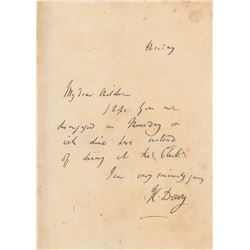 My dear
I hope you are
disengaged on Thursday &
will dine here instead
of dining at the Club
I am very sincerely yours
H Davy